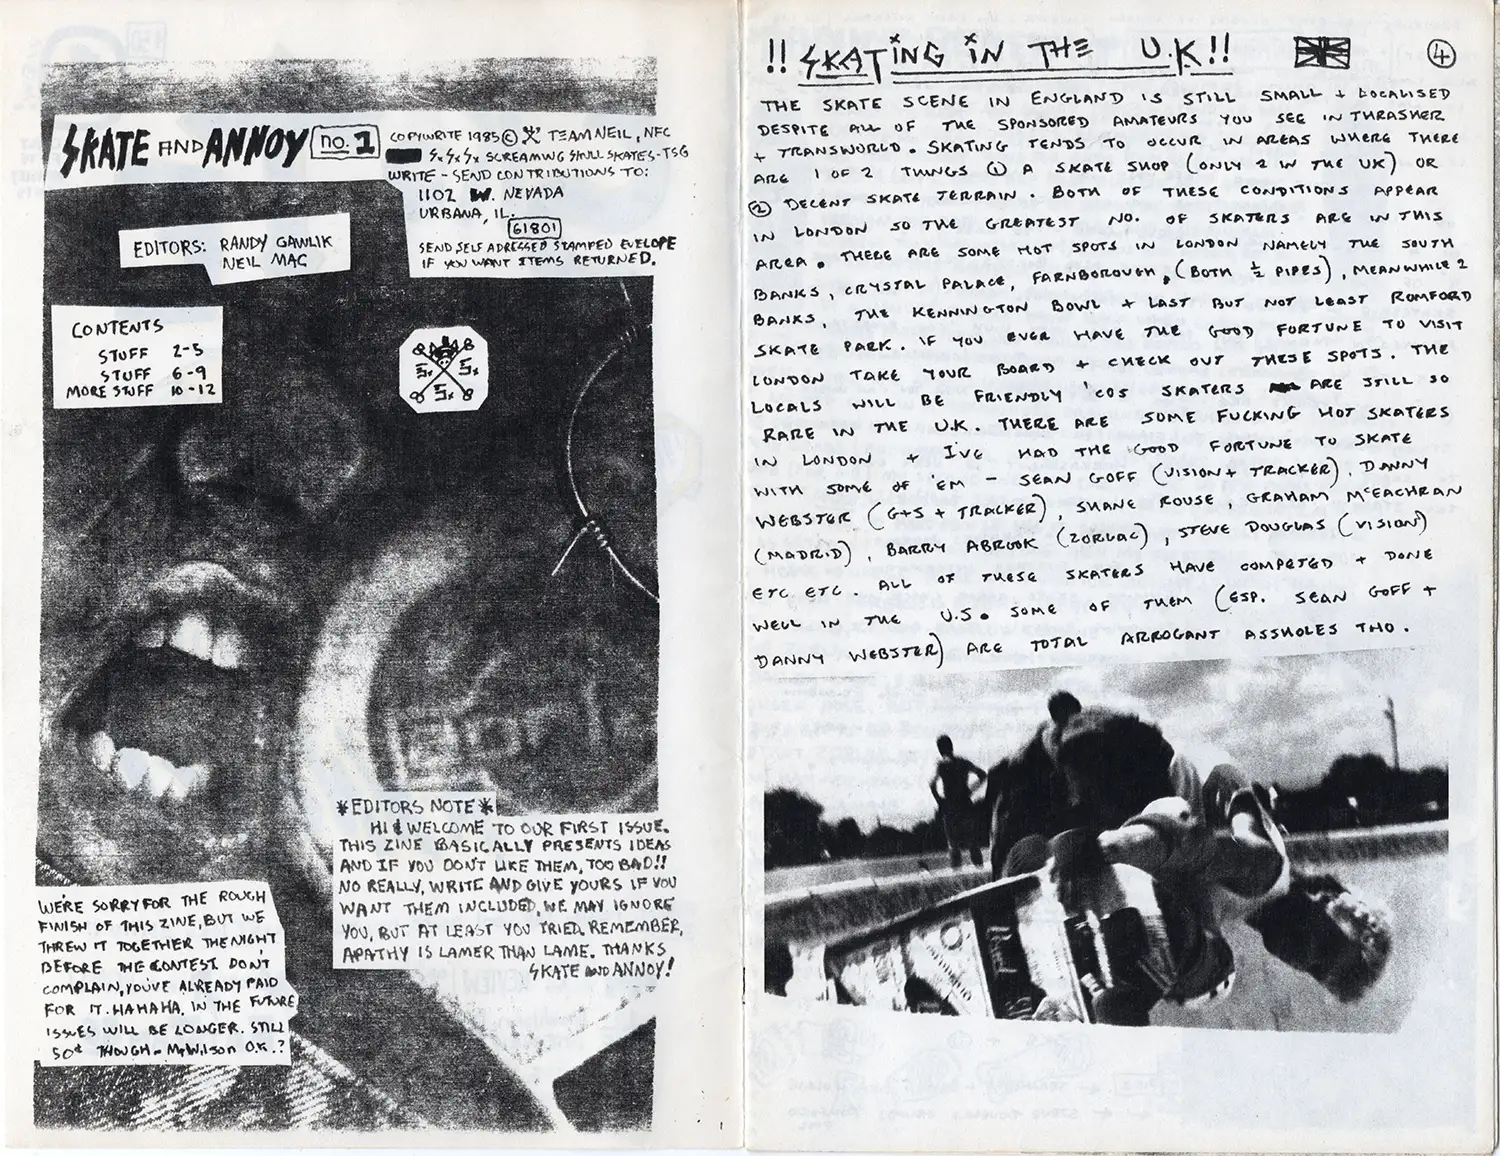 SKATE AND ANNOY no. 1
COPYWRITE 1985 © TEAM NEIL, NFC
SxSxSx SCREAMING SKULL SKATES - TSG
WRITE - SEND CONTRIBUTIONS TO:
1102 W. NEVADA
URBANA, IL.
61801
SEND SELF ADRESSED STAMPED EVELOPE
IF YOU WANT ITEMS RETURNED.
EDITORS: RANDY GAWLIK
NEIL MAC
CONTENTS
STUFF 2-5
STUFF 6-9
MORE STUFF 10-12
Sx Sx
Sx
*EDITORS NOTE*
HI & WELCOME TO OUR FIRST ISSUE.
THIS ZINE BASICALLY PRESENTS IDEAS
AND IF YOU DON'T LIKE THEM, TOO BAD!!
NO REALLY, WRITE AND GIVE YOURS IF YOU
WANT THEM INCLUDED, WE MAY IGNORE
YOU, BUT AT LEAST YOU TRIED. REMEMBER,
APATHY IS LAMER THAN LAME. THANKS
SKATE AND ANNOY!
WE'RE SORRY FOR THE ROUGH
FINISH OF THIS ZINE, BUT WE
THREW IT TOGETHER THE NIGHT
BEFORE THE CONTEST. DON'T
COMPLAIN, YOU'VE ALREADY PAID
FOR IT. HA HA HA. IN THE FUTURE
ISSUES WILL BE LONGER. STILL
50¢ THOUGH - Mr Wilson O.K.?
!! SKATING IN THE U.K !!
4
THE SKATE SCENE IN ENGLAND IS STILL SMALL + LOCALISED
DESPITE ALL OF THE SPONSORED AMATEURS YOU SEE IN THRASHER
+ TRANSWORLD. SKATING TENDS TO OCCUR IN AREAS WHERE THERE
ARE 1 OF 2 THINGS ① A SKATE SHOP (ONLY 2 IN THE UK) OR
② DECENT SKATE TERRAIN. BOTH OF THESE CONDITIONS APPEAR
IN LONDON SO THE GREATEST NO. OF SKATERS ARE IN THIS
AREA. THERE ARE SOME HOT SPOTS IN LONDON NAMELY THE SOUTH
BANKS, CRYSTAL PALACE, FARNBOROUGH, (BOTH ½ PIPES), MEANWHILE 2
BANKS, THE KENNINGTON BOWL + LAST BUT NOT LEAST ROMFORD
SKATE PARK. IF YOU EVER HAVE THE GOOD FORTUNE TO VISIT
LONDON TAKE YOUR BOARD + CHECK OUT THESE SPOTS. THE
LOCALS WILL BE FRIENDLY 'COS SKATERS ARE STILL SO
RARE IN THE U.K. THERE ARE SOME FUCKING HOT SKATERS
IN LONDON + I'VE HAD THE GOOD FORTUNE TO SKATE
WITH SOME OF 'EM - SEAN GOFF (VISION + TRACKER), DANNY
WEBSTER (G+S + TRACKER), SHANE ROUSE, GRAHAM McEACHRAN
(MADRID), BARRY ABROOK (ZORLAC), STEVE DOUGLAS (VISION)
ETC ETC. ALL OF THESE SKATERS HAVE COMPETED + DONE
WELL IN THE U.S. SOME OF THEM (ESP. SEAN GOFF +
DANNY WEBSTER) ARE TOTAL ARROGANT ASSHOLES THO.